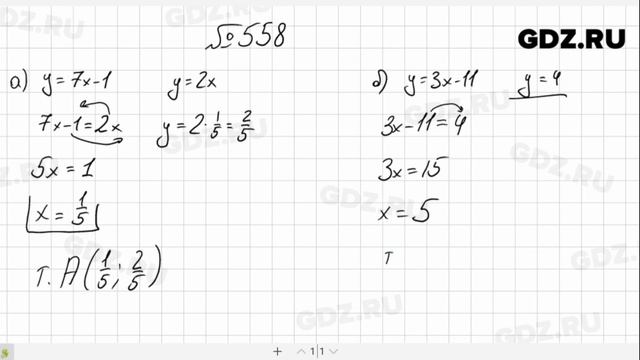 № 558
GDZ.RU
а) y = 7x - 1 y = 2x
7x - 1 = 2x y = 2 · 1/5 = 2/5
5x = 1
x = 1/5
т. A (1/5; 2/5)
б) y = 3x - 11 y = 4
3x - 11 = 4
3x = 15
x = 5
т
1 | 1